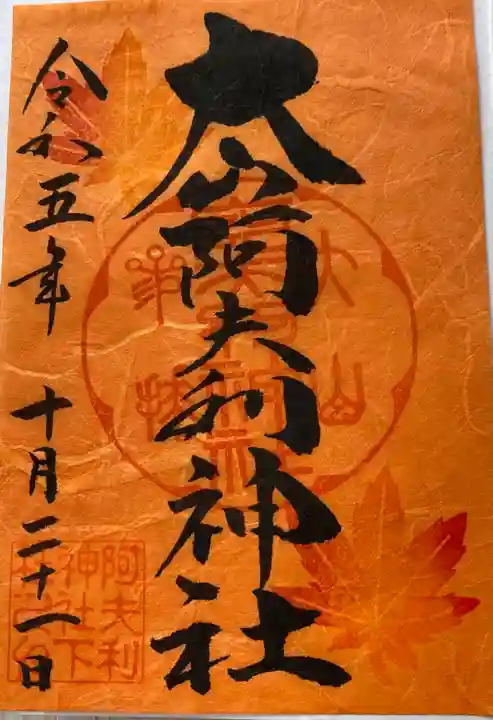 大山阿夫利神社
令和五年 十月二十一日
阿夫利
神社下